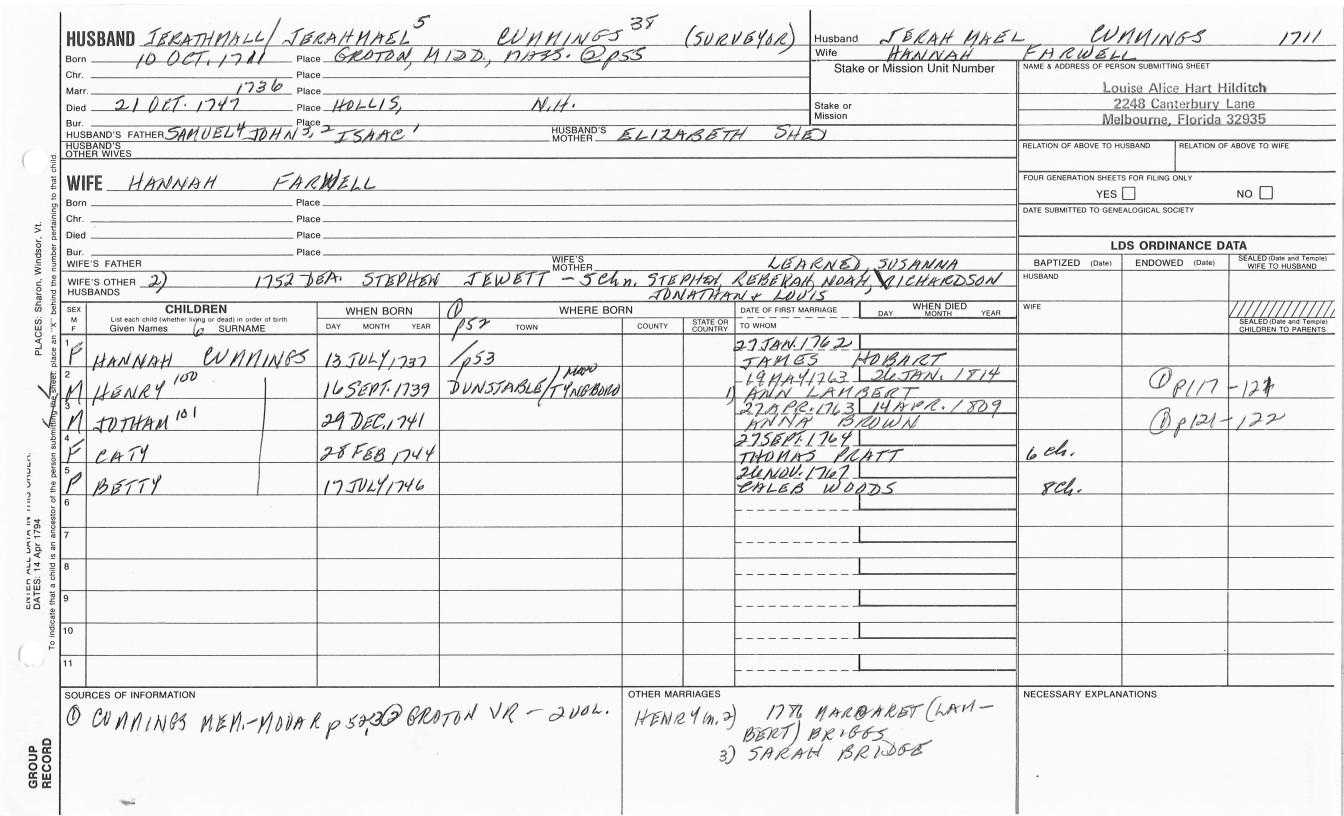 HUSBAND JERATHMALL/JERAHMAEL 5 CUMMINGS 38 (SURVEYOR)
Born 10 OCT. 1711 Place GROTON, MIDD., MASS. ② p55
Chr. Place
Marr. 1736 Place
Died 21 OCT. 1747 Place HOLLIS, N.H.
Bur. Place
HUSBAND'S FATHER SAMUEL 4 JOHN 3, 2 ISAAC 1 HUSBAND'S MOTHER ELIZABETH SHED
HUSBAND'S OTHER WIVES
Husband JERAH MAEL CUMMINGS 1711
Wife HANNAH FARWELL
Stake or Mission Unit Number
Stake or Mission
NAME & ADDRESS OF PERSON SUBMITTING SHEET
Louise Alice Hart Hilditch
2248 Canterbury Lane
Melbourne, Florida 32935
RELATION OF ABOVE TO HUSBAND RELATION OF ABOVE TO WIFE
FOUR GENERATION SHEETS FOR FILING ONLY
YES NO
DATE SUBMITTED TO GENEALOGICAL SOCIETY
WIFE HANNAH FARWELL
Born Place
Chr. Place
Died Place
Bur. Place
WIFE'S FATHER WIFE'S MOTHER LEARNED, SUSANNA
WIFE'S OTHER HUSBANDS 2) 1752 DEA. STEPHEN JEWETT - 5 Ch. STEPHEN, REBEKAH, NOAH, RICHARDSON
JONATHAN + LOUIS
LDS ORDINANCE DATA
BAPTIZED (Date) ENDOWED (Date) SEALED (Date and Temple) WIFE TO HUSBAND
HUSBAND
WIFE
SEALED (Date and Temple) CHILDREN TO PARENTS
SEX M F CHILDREN List each child (whether living or dead) in order of birth Given Names SURNAME
WHEN BORN DAY MONTH YEAR
① p52 WHERE BORN TOWN COUNTY STATE OR COUNTRY
DATE OF FIRST MARRIAGE TO WHOM
WHEN DIED DAY MONTH YEAR
1 F HANNAH CUMMINGS 13 JULY 1737 /p53 27 JAN. 1762 JAMES HOBART
2 M HENRY 100 16 SEPT. 1739 DUNSTABLE/ TYNGBORO 19 MAY 1763 26 JAN. 1814 1) ANN LAMBERT ① p117-121
3 M JOTHAM 101 29 DEC. 1741 27 APR. 1763 14 APR. 1809 ANNA BROWN ① p121-122
4 F CATY 28 FEB 1744 27 SEPT. 1764 THOMAS PRATT 6 Ch.
5 F BETTY 17 JULY 1746 26 NOV. 1767 CALEB WOODS 8 Ch.
6
7
8
9
10
11
SOURCES OF INFORMATION
① CUMMINGS MEM.-MOOAR p 52,3 ② GROTON VR - 2 VOL.
OTHER MARRIAGES
HENRY m. 2) 1776 MARGARET (LAM-
BERT) BRIGGS
3) SARAH BRIDGE
NECESSARY EXPLANATIONS
PLACES: Sharon, Windsor, Vt.
DATES: 14 Apr 1794
ENTER ALL DATA IN THIS ORDER:
To indicate that a child is an ancestor of the person submitting the sheet, place an "X" behind the number pertaining to that child.
GROUP RECORD